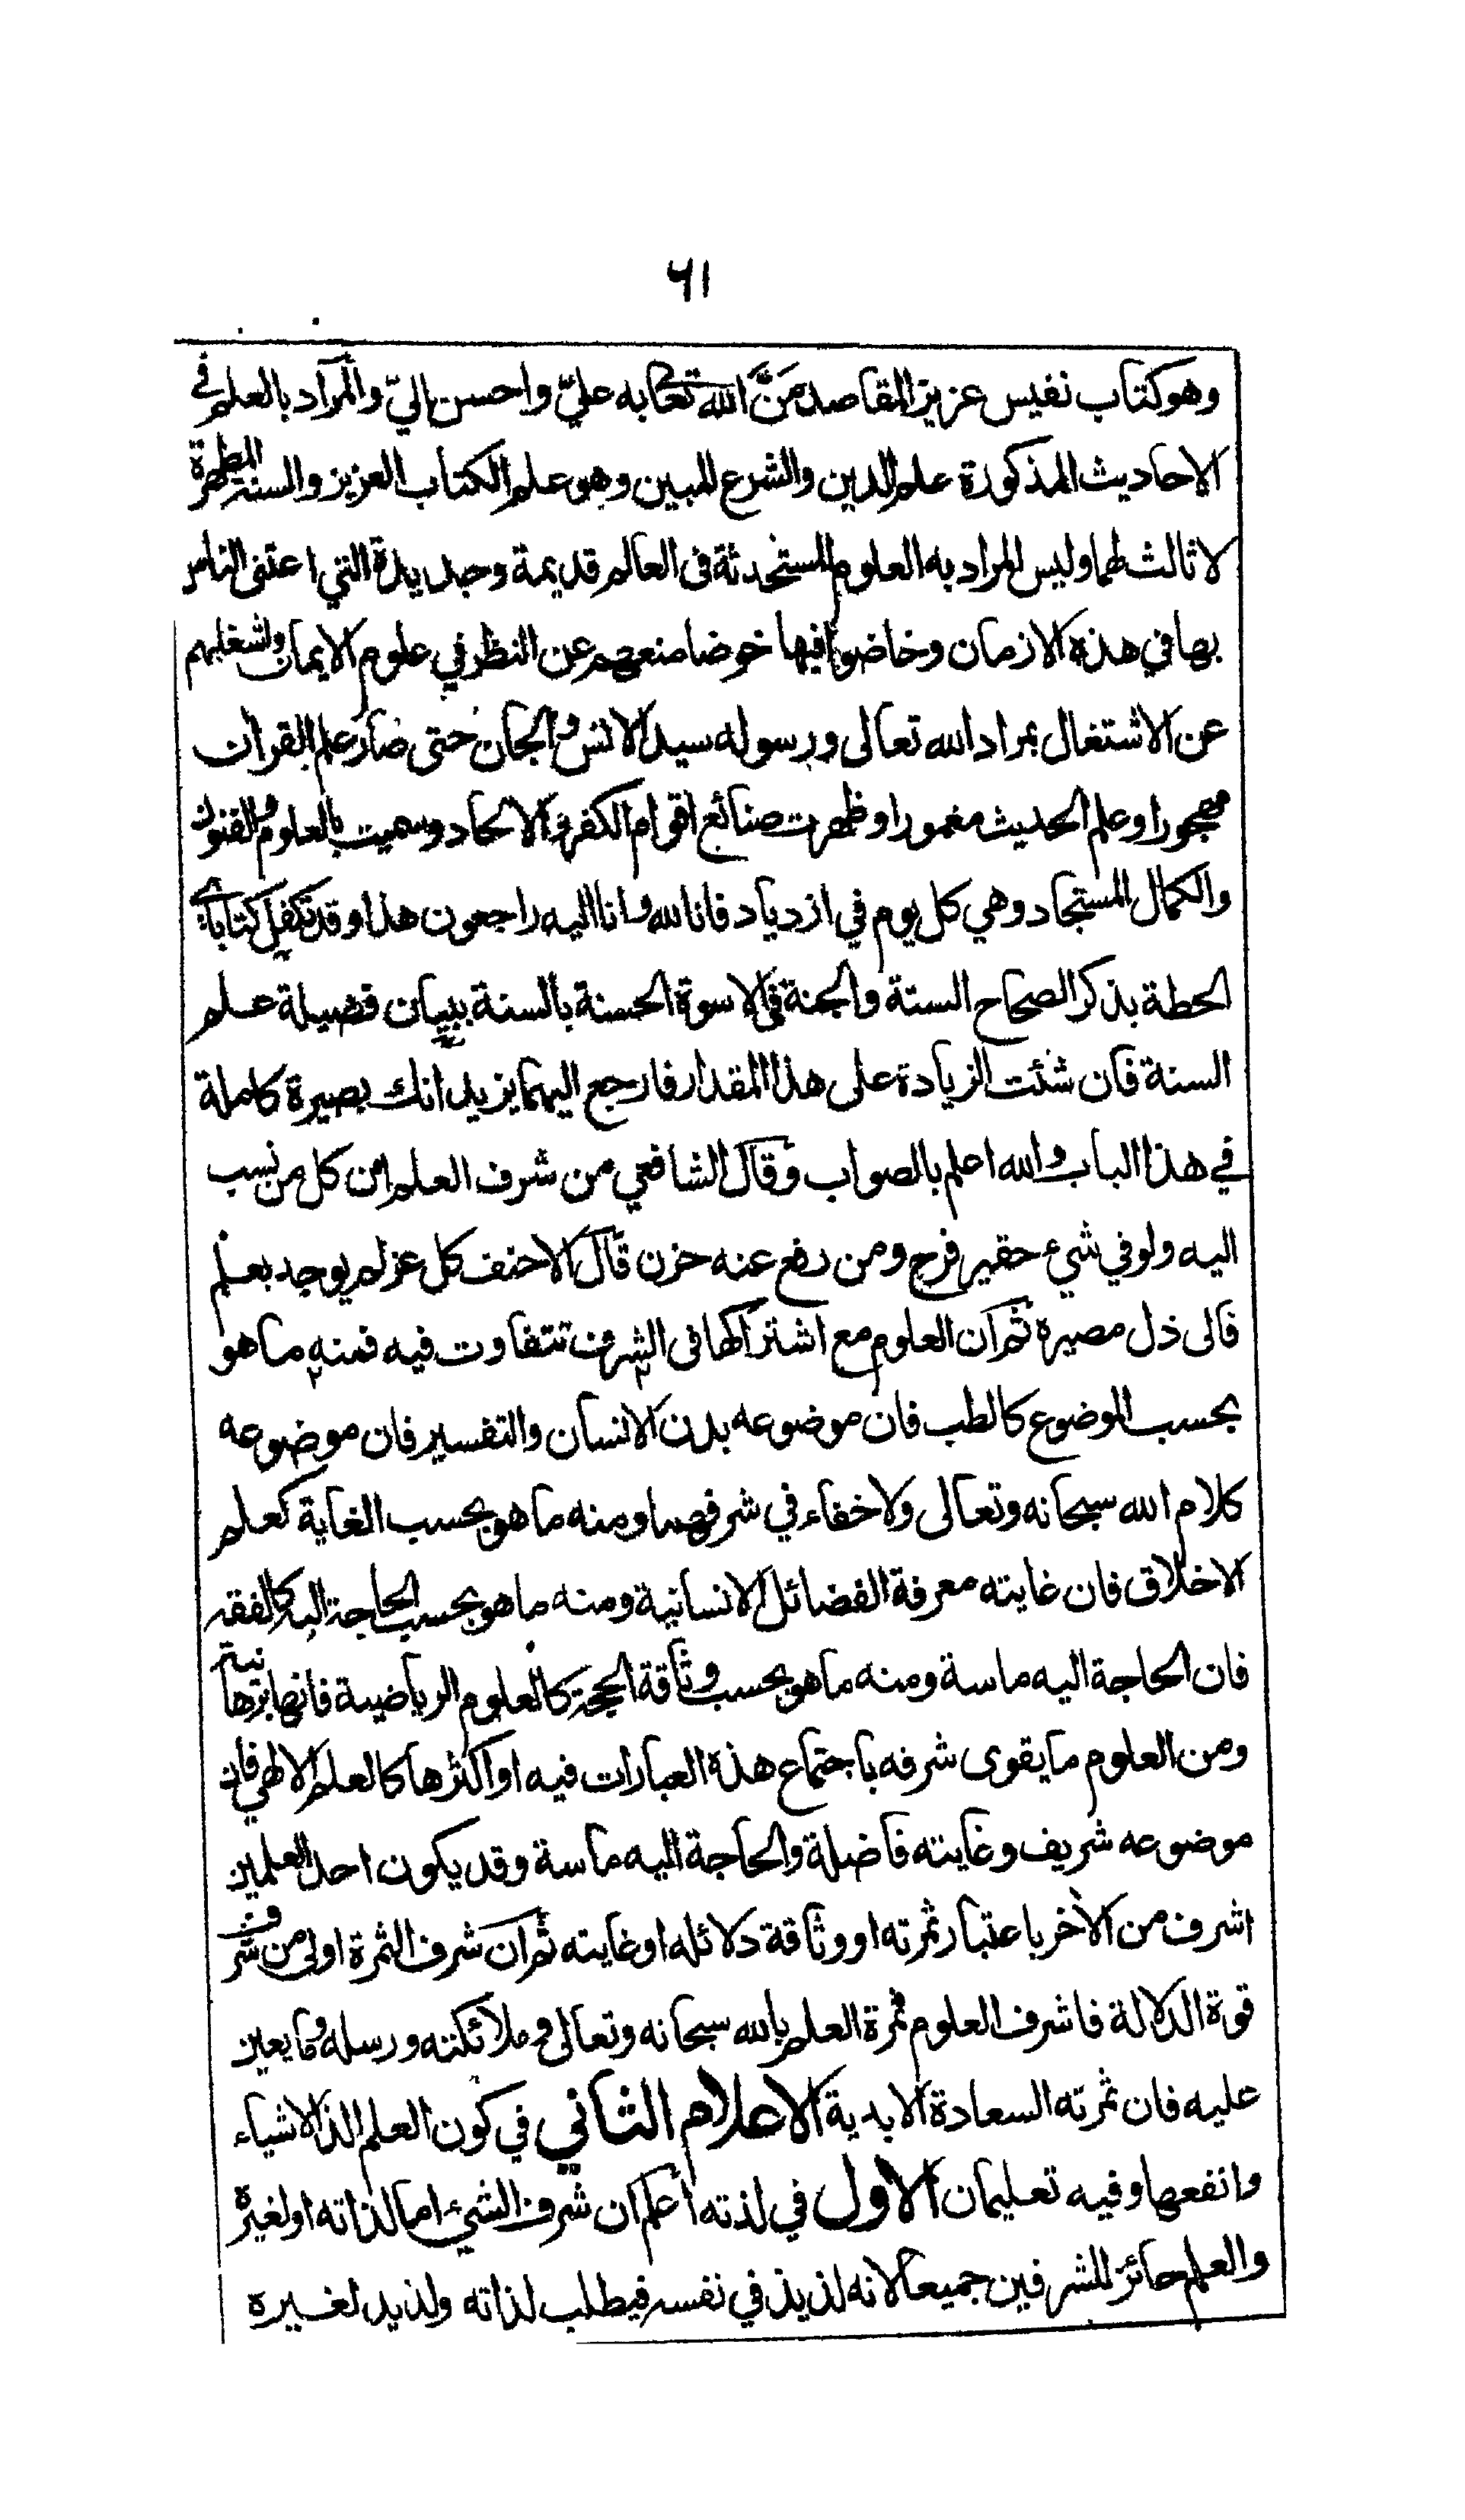 ٦١
وهو كتاب نفيس عزيز المقاصد مَنَّ الله تعالى به عليّ واحسن اليّ والمراد بالعلم في
الاحاديث المذكورة علم الدين والشرع المبين وهو علم الكتاب العزيز والسنة المطهرة
لا ثالث لهما وليس المراد به العلوم المستحدثة في العالم قديمة وجديدة التي اعتنى الناس
بها في هذه الازمان وخاضوا فيها خوضا منعهم عن النظر في علوم الايمان واشغلهم
عن الاشتغال بمراد الله تعالى ورسوله سيد الانس والجان حتى صار علم القران
مهجورا وعلم الحديث مغمورا وظهرت صنائع اقوام الكفر والالحاد وسميت بالعلوم والفنون
والكمال المستجاد وهي كل يوم في ازدياد فانا لله وانا اليه راجعون هذا وقد تكفل كتاباي
الحطة بذكر الصحاح الستة والجنة في الاسوة الحسنة بالسنة ببيان فضيلة علم
السنة فان شئت الزيادة على هذا المقدار فارجع اليهما يزيدانك بصيرة كاملة
في هذا الباب والله اعلم بالصواب وقال الشافعي من شرف العلم ان كل من نسب
اليه ولو في شيء حقير فرح ومن رفع عنه حزن قال الاحنف كل عز لم يوجد بعلم
فالى ذل مصيره ثم ان العلوم مع اشتراكها في الشرف تتفاوت فيه فمنه ما هو
بحسب الموضوع كالطب فان موضوعه بدن الانسان والتفسير فان موضوعه
كلام الله سبحانه وتعالى ولا خفاء في شرفهما ومنه ما هو بحسب الغاية كعلم
الاخلاق فان غايته معرفة الفضائل الانسانية ومنه ما هو بحسب الحاجة اليه كالفقه
فان الحاجة اليه ماسة ومنه ما هو بحسب وثاقة الحجة كالعلوم الرياضية فانها برهانية
ومن العلوم ما يقوى شرفه باجتماع هذه العبارات فيه او اكثرها كالعلم الالهي فان
موضوعه شريف وغايته فاضلة والحاجة اليه ماسة وقد يكون احد العلمين
اشرف من الآخر باعتبار ثمرته او وثاقة دلائله او غايته ثم ان شرف الثمرة اولى من شرف
قوة الدلالة فاشرف العلوم ثمرة العلم بالله سبحانه وتعالى وملائكته ورسله وما يعين
عليه فان ثمرته السعادة الابدية الاعلام الثاني في كون العلم الذ الاشياء
وانفعها وفيه تعليمان الاول في لذته اعلم ان شرف الشيء اما لذاته او لغيره
والعلم حائز للشرفين جميعا لانه لذيذ في نفسه فيطلب لذاته ولذيذ لغيره